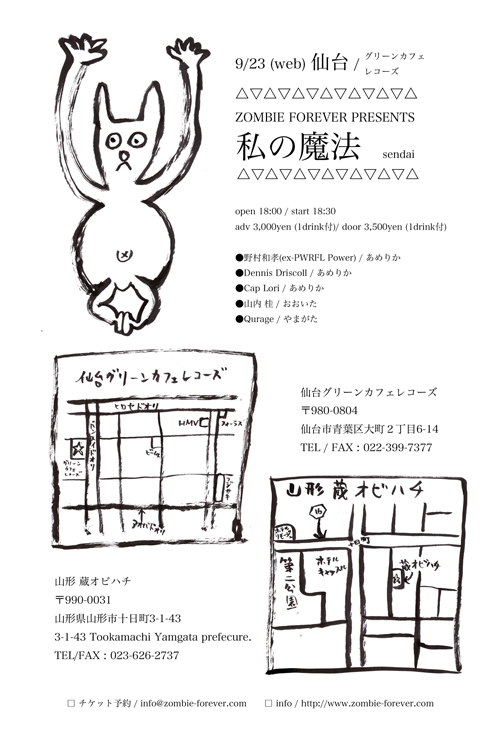 9/23 (web) 仙台 / グリーンカフェ
レコーズ
△▽△▽△▽△▽△▽△▽△
ZOMBIE FOREVER PRESENTS
私の魔法 sendai
△▽△▽△▽△▽△▽△▽△
open 18:00 / start 18:30
adv 3,000yen (1drink付)/ door 3,500yen (1drink付)
●野村和孝(ex-PWRFL Power) / あめりか
●Dennis Driscoll / あめりか
●Cap Lori / あめりか
●山内 桂 / おおいた
●Qurage / やまがた
仙台グリーンカフェレコーズ
ヒロセドオリ
HMV
フォーラス
ビブレ
グリーン
カフェ
レコーズ
フジサキ
アオバドオリ
仙台グリーンカフェレコーズ
〒980-0804
仙台市青葉区大町２丁目6-14
TEL / FAX : 022-399-7377
山形 蔵オビハチ
16
十日町
ホテル
キャッスル
蔵オビハチ
第二公園
山形 蔵オビハチ
〒990-0031
山形県山形市十日町3-1-43
3-1-43 Tookamachi Yamgata prefecure.
TEL/FAX : 023-626-2737
□ チケット予約 / info@zombie-forever.com □ info / http://www.zombie-forever.com